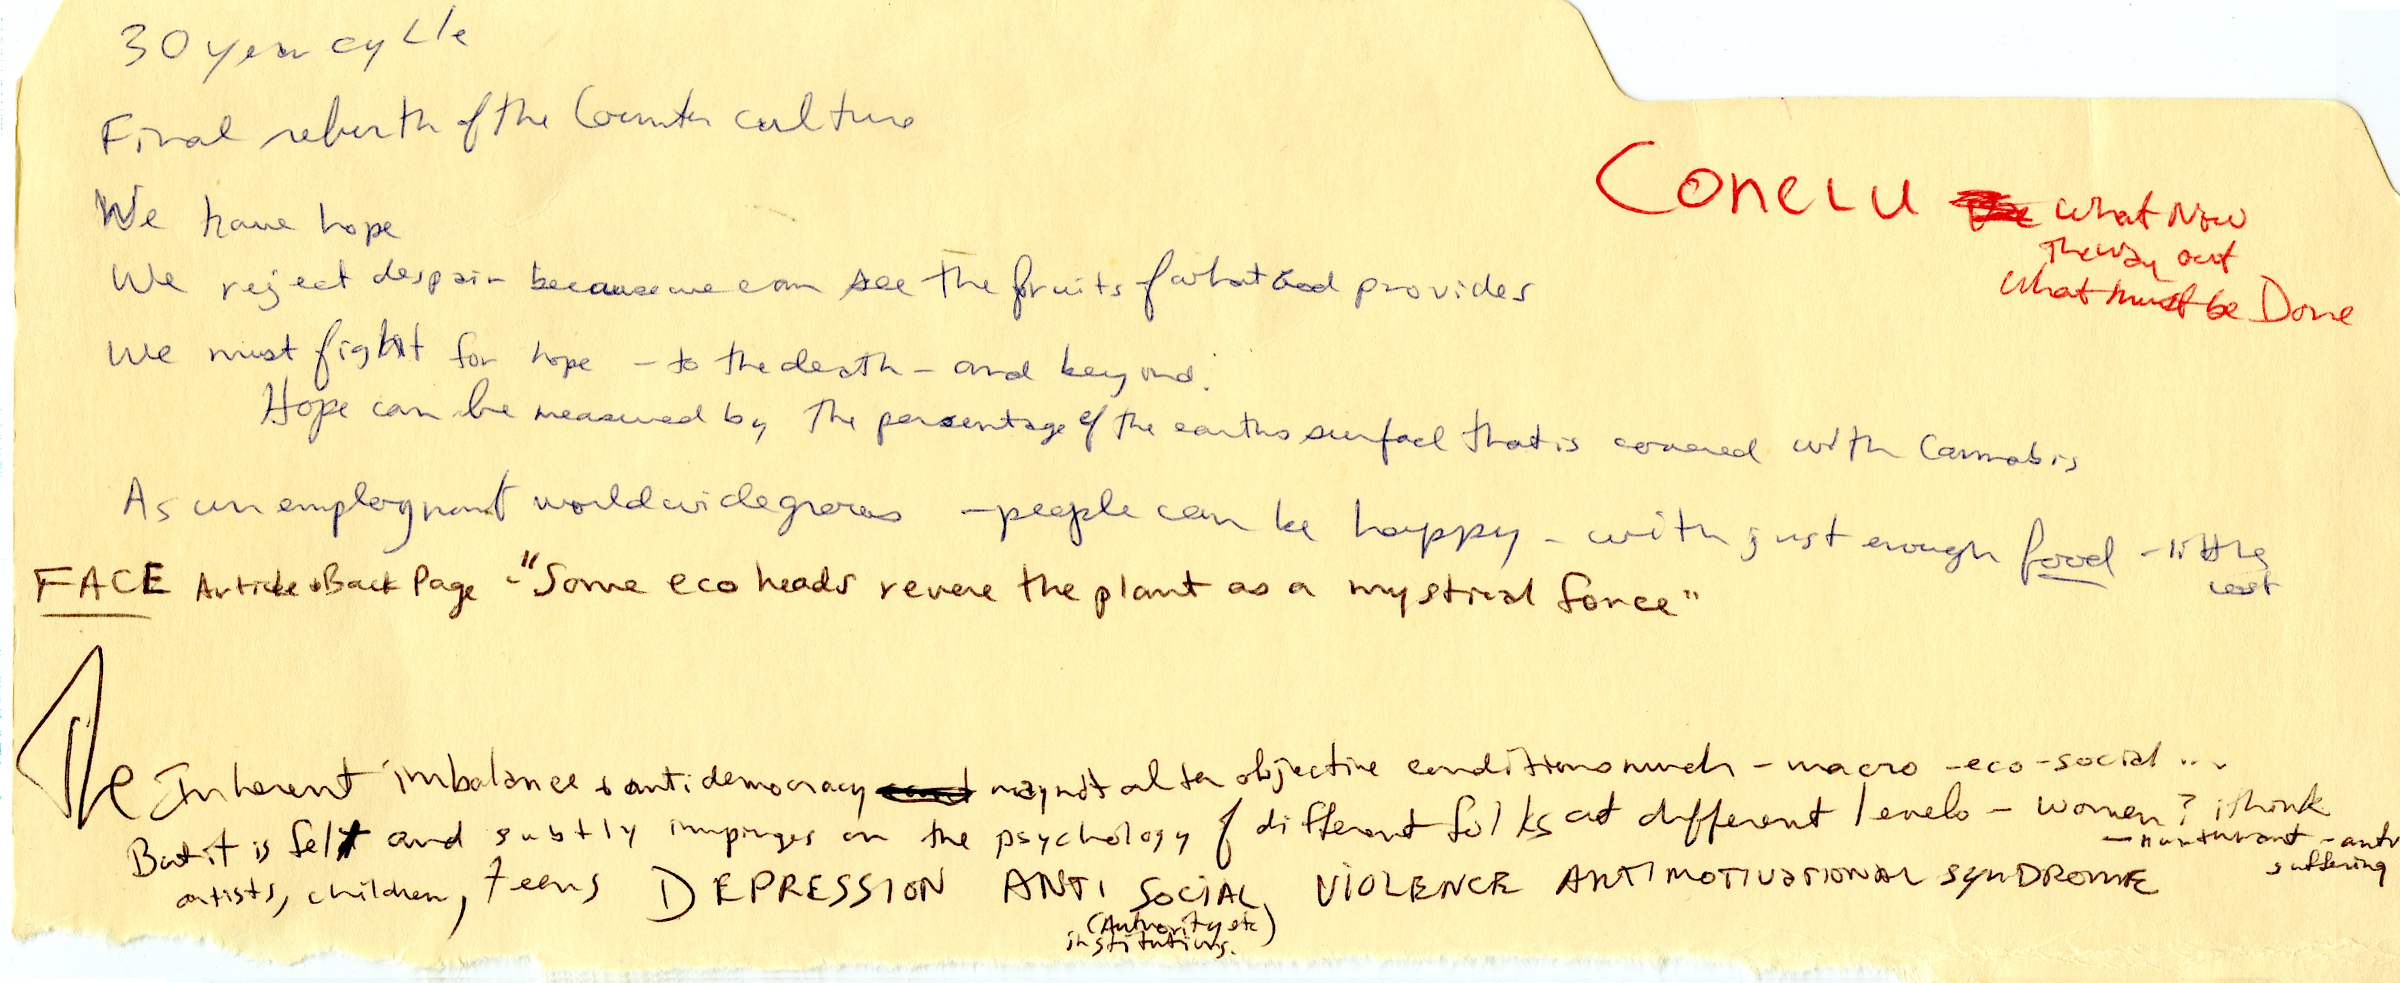 30 year cycle
Final rebirth of the Counter culture
We have hope
We reject despair because we can see the fruits of what God provides
We must fight for hope - to the death - and beyond.
Hope can be measured by the percentage of the earths surface that is covered with Cannabis
As unemployment worldwide grows - people can be happy - with just enough food - little
cost
Conclu What Now
The Way out
What must be Done
FACE Article Back Page - "Some eco heads revere the plant as a mystical force"
The Inherent imbalance + antidemocracy may not alter objective conditions much - macro - eco - social ...
But it is felt and subtly impinges on the psychology of different folks at different levels - women? i think
- nurturant - anti
suffering
artists, children, teens DEPRESSION ANTI SOCIAL, VIOLENCE ANTIMOTIVATIONAL SYNDROME
(Authority etc)
institutions.